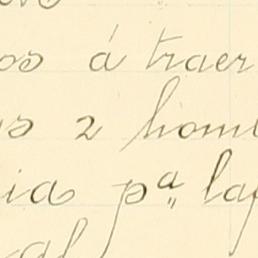 os á traer
s 2 homb
ia pª la
al